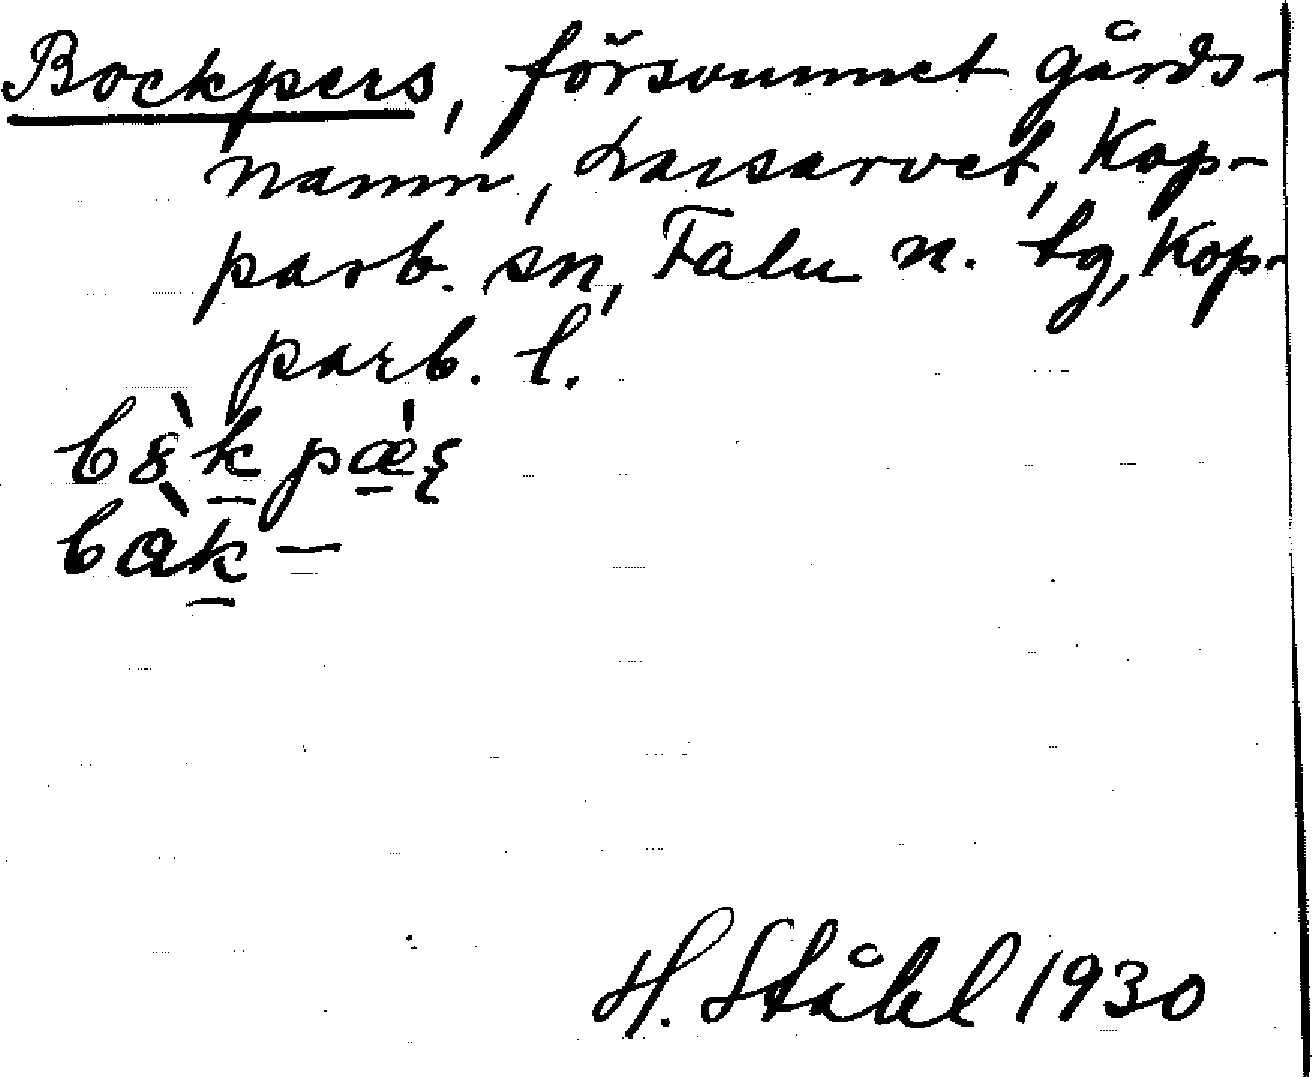 Bockpers, försvunnet gårds-
namn, Larsarvet, Kop-
parb. sn, Falu n. tg, Kop-
parb. l.
H. Ståhl 1930